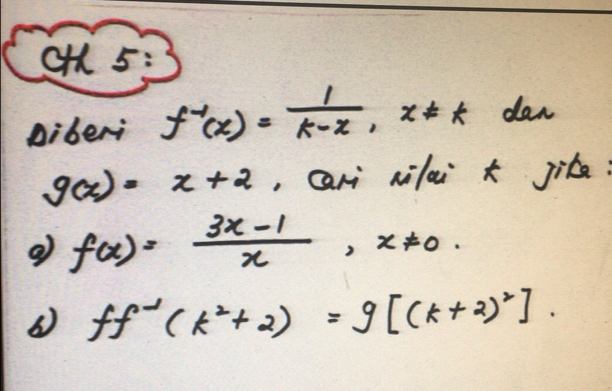 Cth 5:
Diberi f⁻¹(x) = 1/(k-x), x ≠ k dan
g(x) = x + 2, cari nilai k jika:
a) f(x) = (3x - 1)/x, x ≠ 0.
b) ff⁻¹(k² + 2) = g[(k + 2)²].